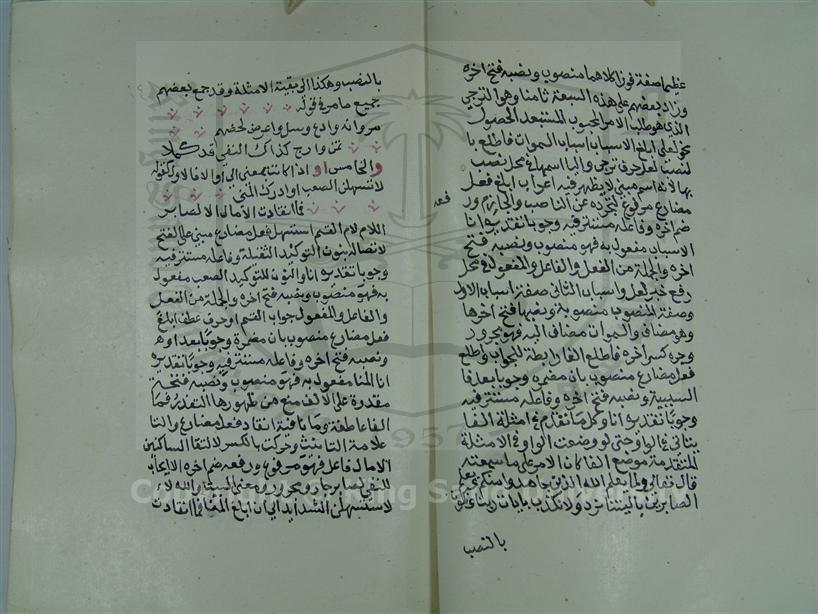 عظيما صفة فوزا كلاهما منصوب ونصبه فتح اخره
وزاد بعضهم على هذه السبعة ثامنا وهو الترجي
الذي هو طلب الامر المحبوب المستبعد الحصول
نحو لعلي ابلغ الاسباب اسباب السموات فاطلع با
لنصب لعل حرف ترجي واليا اسمها في محل نصب
بها لانه اسم مبني لا يظهر فيه اعراب ابلغ فعل
مضارع مرفوع لتجرده عن الناصب والجازم ور
فعه
ضم اخره وفاعله مستتر فيه وجوبا تقديره انا
الاسباب مفعول به فهو منصوب ونصبه فتح
اخره والجملة من الفعل والفاعل والمفعول في محل
رفع خبر لعل واسباب الثاني صفة اسباب الاول
وصفة المنصوب منصوبة ونصبها فتح اخرها
وهو مضاف والسموات مضاف اليه فهو مجرور
وجره كسر اخره فاطلع الفا رابطة للجواب واطلع
فعل مضارع منصوب بان مضمرة وجوبا بعد فا
السببية ونصبه فتح اخره وفاعله مستتر فيه
وجوبا تقديره انا وكل ما تقدم في امثلة الفا
ياتي في الواو حتى لو وضعت الواو في الامثلة
المتقدمة موضع الفا كان الامر على ما سمعته
قال تعالى ولما يعلم الله الذين جاهدوا منكم ويعلم
الصابرين يا ليتنا نرد ولا نكذب بايات ربنا ونكون
بالنصب
بالنصب وهكذا الى بقية الامثلة وقد جمع بعضهم
جميع ما مر في قوله
مر وانه وادع وسل واعرض لحضهم
تمن وارج كذاك النفي قد كملا
والخامس او اذا كانت بمعنى الى او الا فالاول كقوله
لاستسهلن الصعب او ادرك المنى
فما انقادت الآمال الا لصابر
اللام لام القسم استسهل فعل مضارع مبني على الفتح
لاتصاله بنون التوكيد الثقيلة وفاعله مستتر فيه
وجوبا تقديره انا والنون للتوكيد الصعب مفعول
به فهو منصوب ونصبه فتح اخره والجملة من الفعل
والفاعل والمفعول جواب القسم او حرف عطف ابلغ
فعل مضارع منصوب بان مضمرة وجوبا بعد او
ونصبه فتح اخره وفاعله مستتر فيه وجوبا تقديره
انا المنا مفعول به فهو منصوب ونصبه فتحة
مقدرة على الالف منع من ظهورها التعذر فما
الفا عاطفة وما نافية انقاد فعل ماضي والتا
علامة التانيث وحركت بالكسر لالتقا الساكنين
الامال فاعل فهو مرفوع ورفعه ضم اخره الا ايجاب
للنفي لصابر جار ومجرور ومعنى البيت والله لا
لاستسهلن الشدايد الى ان ابلغ المنا فما انقادت